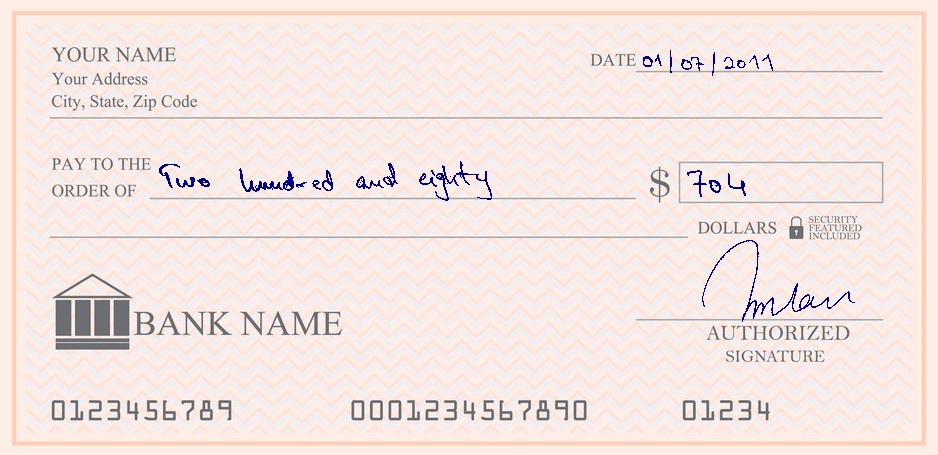 YOUR NAME
Your Address
City, State, Zip Code
DATE 01/07/2011
PAY TO THE
ORDER OF Two hundred and eighty $ 704
DOLLARS SECURITY FEATURED INCLUDED
BANK NAME
AUTHORIZED
SIGNATURE
0123456789 0001234567890 01234